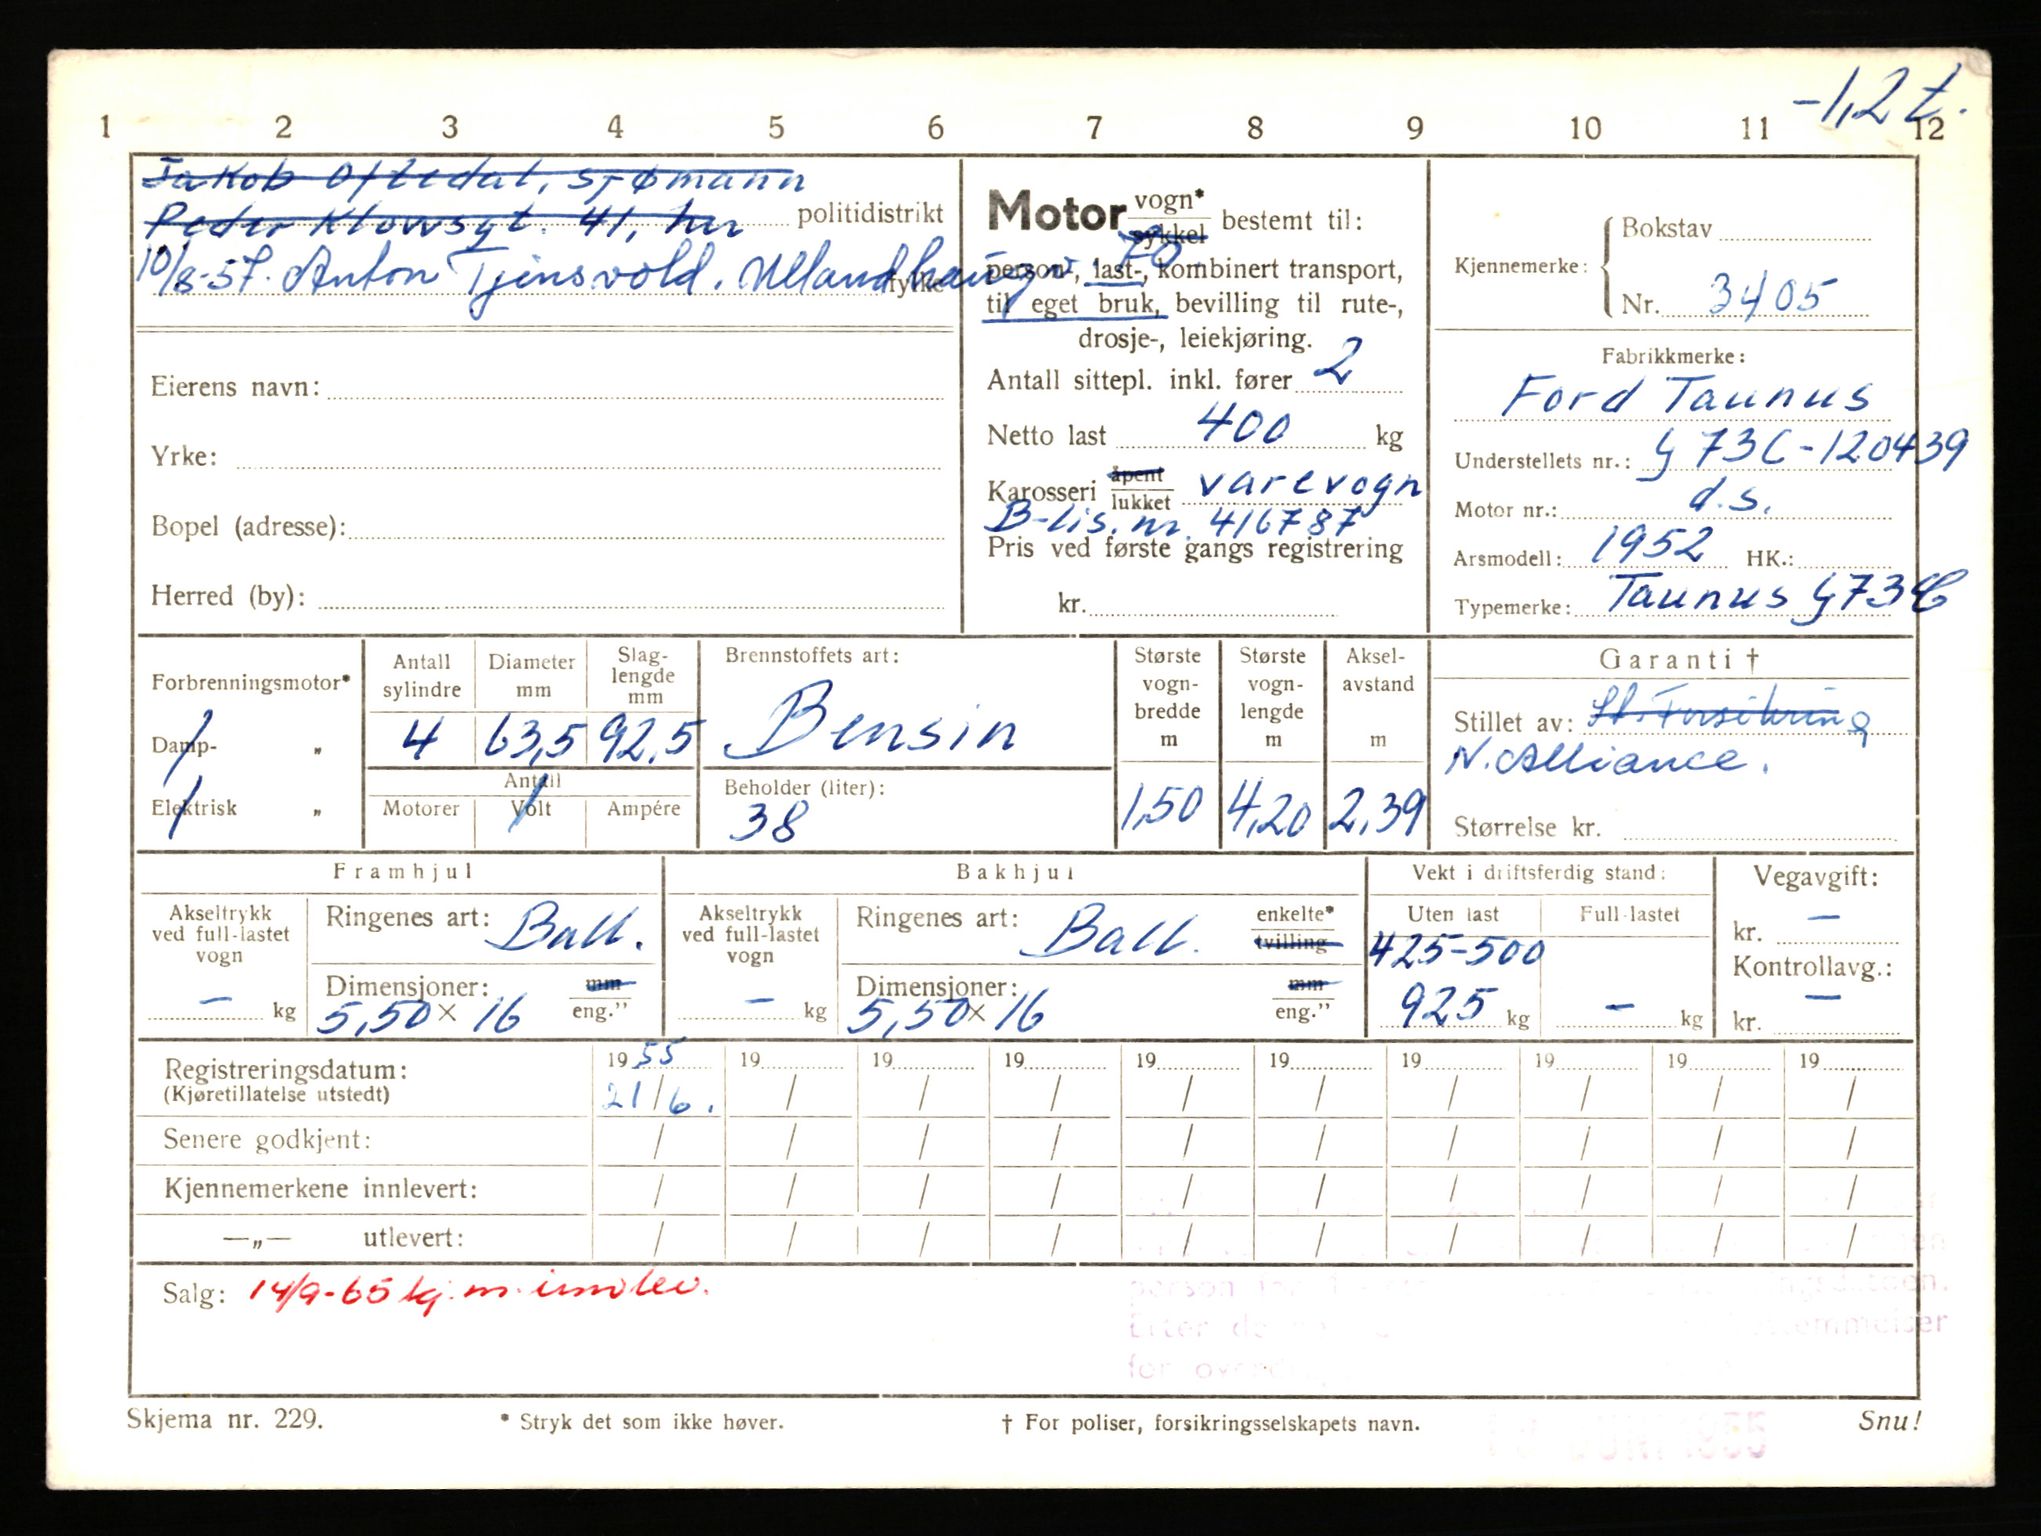 -1,2 t.
1 2 3 4 5 6 7 8 9 10 11 12
Jakob Oftedal, sjømann
Peder Klowsgt. 41, her politidistrikt
10/8-57. Anton Tjensvold. Ullandhaugv. 70. fylke
Eierens navn:
Yrke:
Bopel (adresse):
Herred (by):
Motor vogn* sykkel bestemt til:
person-, last-, kombinert transport,
til eget bruk, bevilling til rute-,
drosje-, leiekjøring.
Antall sittepl. inkl. fører 2
Netto last 400 kg
Karosseri åpent lukket varevogn
B-lis. nr. 416787
Pris ved første gangs registrering
kr.
Kjennemerke: Bokstav
Nr. 3405
Fabrikkmerke:
Ford Taunus
Understellets nr.: G 73C-120439
Motor nr.: d.s.
Årsmodell: 1952 HK.:
Typemerke: Taunus G73C
Forbrenningsmotor*
Damp- „
Elektrisk „
Antall sylindre Diameter mm Slag-lengde mm
4 63,5 92,5
Antall
Motorer Volt Ampére
Brennstoffets art:
Bensin
Beholder (liter):
38
Største vogn-bredde m Største vogn-lengde m Aksel-avstand m
1,50 4,20 2,39
Garanti †
Stillet av: St. Forsikring
N. Alliance.
Størrelse kr.
Framhjul
Akseltrykk ved full-lastet vogn
– kg
Ringenes art: Ball.
Dimensjoner: mm
5,50 × 16 eng.”
Bakhjul
Akseltrykk ved full-lastet vogn
– kg
Ringenes art: Ball. enkelte* tvilling
Dimensjoner: mm
5,50 × 16 eng.”
Vekt i driftsferdig stand:
Uten last Full-lastet
425-500
925 kg – kg
Vegavgift:
kr. –
Kontrollavg.:
kr. –
Registreringsdatum: 1955 19 19 19 19 19 19 19 19 19
(Kjøretillatelse utstedt) 21/6. / / / / / / / / /
Senere godkjent: / / / / / / / / / /
Kjennemerkene innlevert: / / / / / / / / / /
—„— utlevert: / / / / / / / / / /
Salg: 14/9-65 kj. m. innlev.
Skjema nr. 229. * Stryk det som ikke høver. † For poliser, forsikringsselskapets navn. Snu!